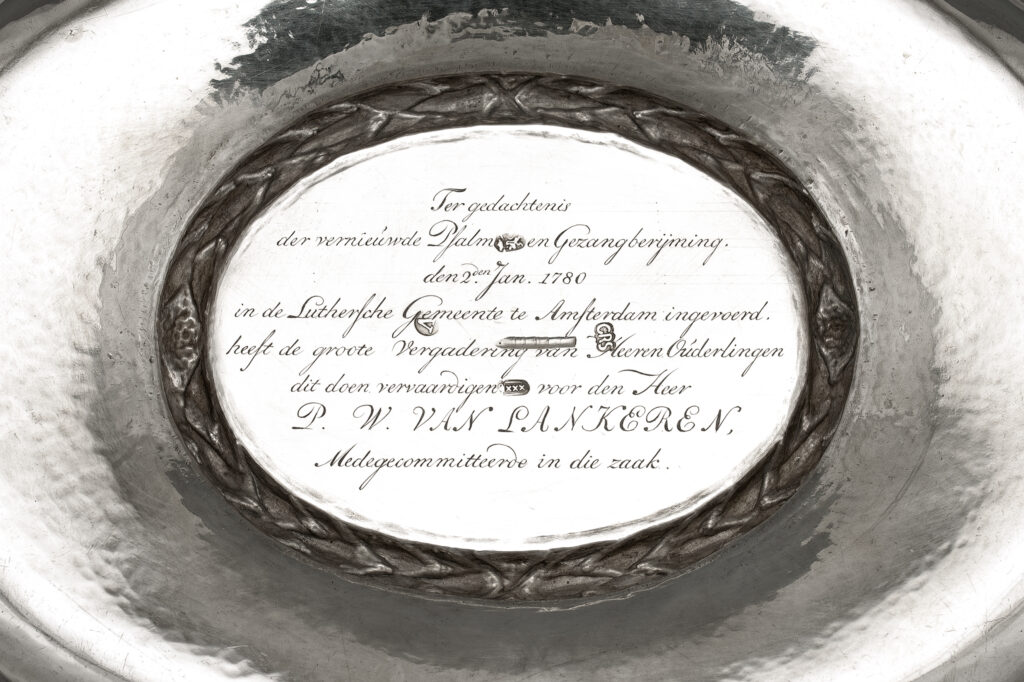 Ter gedachtenis
der vernieuwde Psalm en Gezangberijming.
den 2.den Jan. 1780
in de Luthersche Gemeente te Amsterdam ingevoerd.
heeft de groote Vergadering van Heeren Ouderlingen
dit doen vervaardigen voor den Heer
P. W. VAN LANKEREN,
Medegecommitteerde in die zaak.
XXX